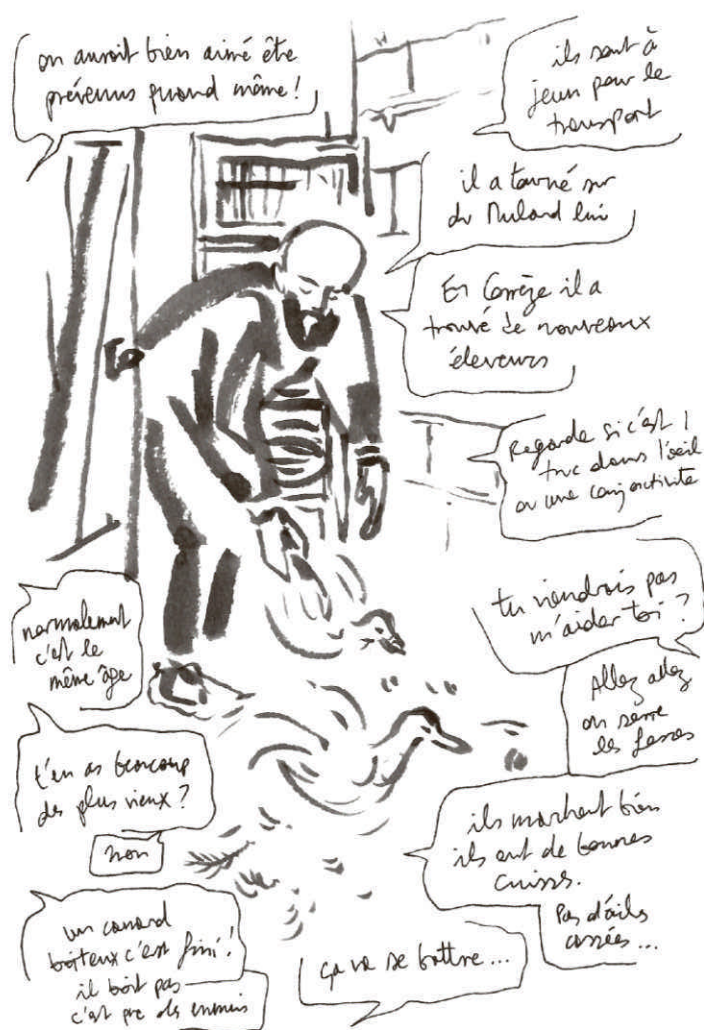 on auroit bien aimé être
prévenus quand même !
ils sont à
jeun pour le
transport
il a tourné sur
du Mulard lui
En Corrèze il a
trouvé de nouveaux
éleveurs
Regarde si c'est 1
truc dans l'oeil
ou une conjonctivite
tu viendrois pas
m'aider toi ?
Allez allez
on serre
les fesses
normalement
c'est le
même âge
t'en as beaucoup
des plus vieux ?
non
ils marchent bien
ils ont de bonnes
cuisses.
Pas d'ailes
cassées ...
un canard
boiteux c'est fini !
il boit pas
c'est que des ennuis
ça va se battre ...